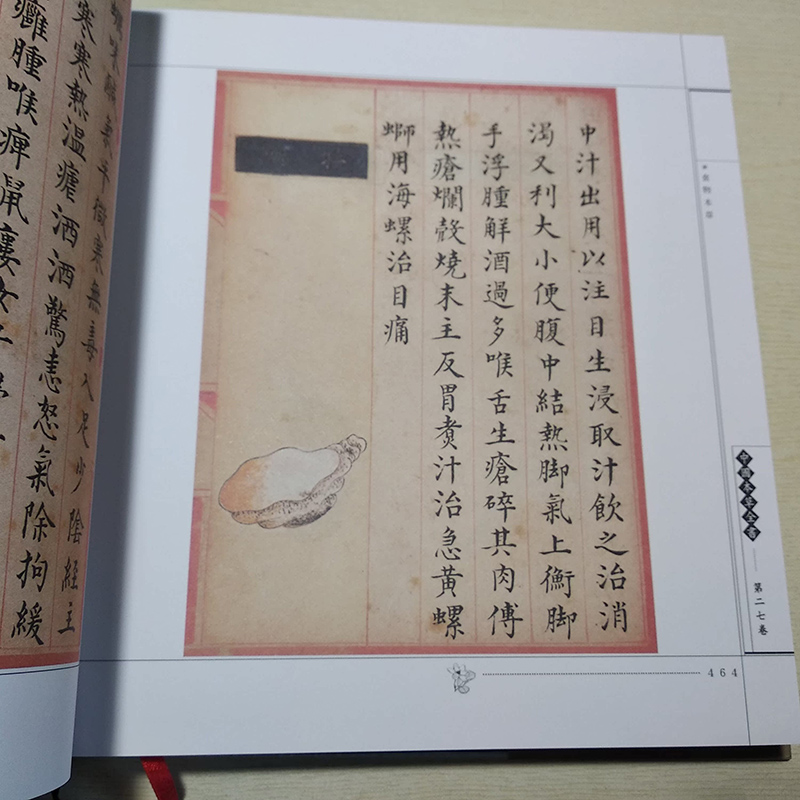 食物本草
中國本草全書
第二七卷
中汁出用以注目生浸取汁飲之治消
渴又利大小便腹中結熱脚氣上衝脚
手浮腫解酒過多喉舌生瘡碎其肉傅
熱瘡爛殼燒末主反胃煑汁治急黃螺
螄用海螺治目痛
464
蠣味鹹氣平微寒無毒入足少陰經主
寒寒熱溫瘧洒洒驚恚怒氣除拘緩
癰腫喉痺鼠瘻女子